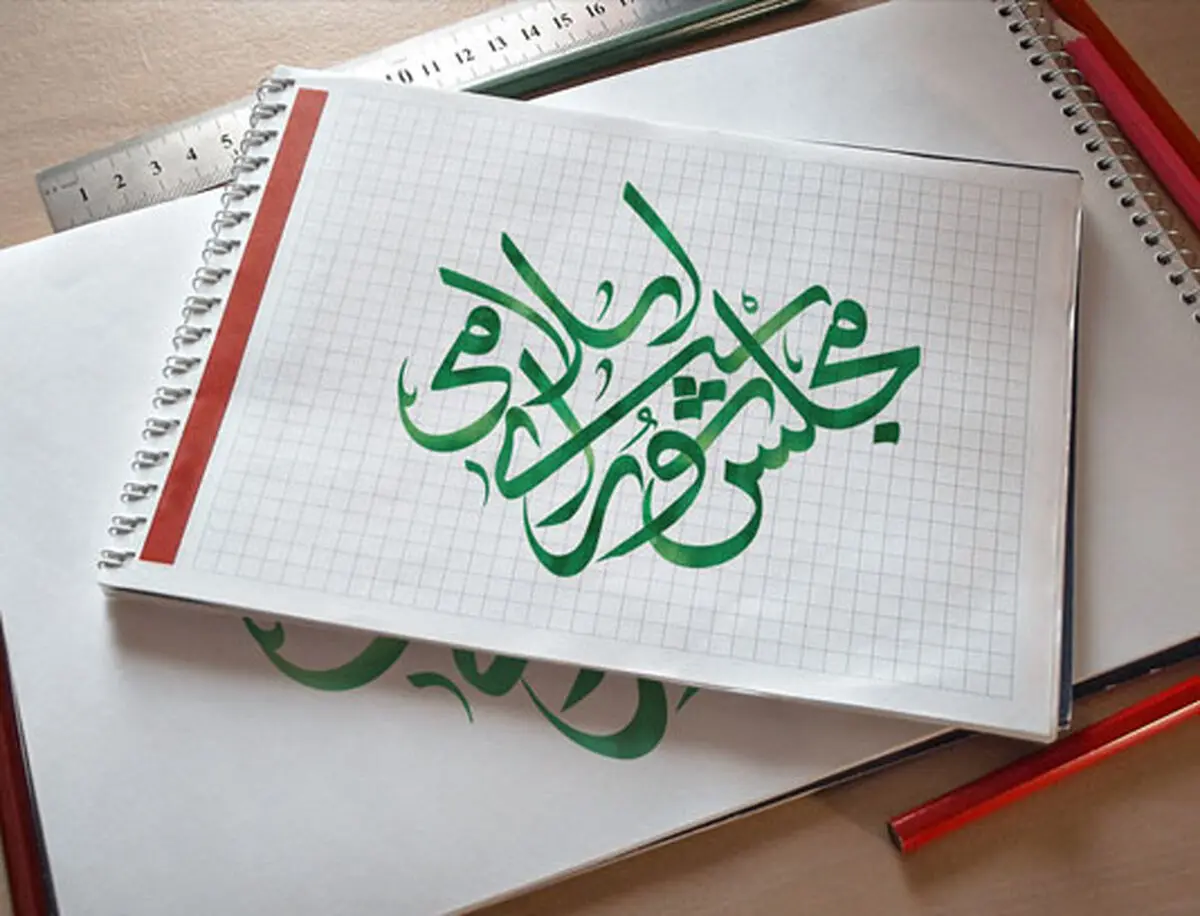 مجلس شورای اسلامی
1 2 3 4 5 10 11 12 13 14 15 16 17